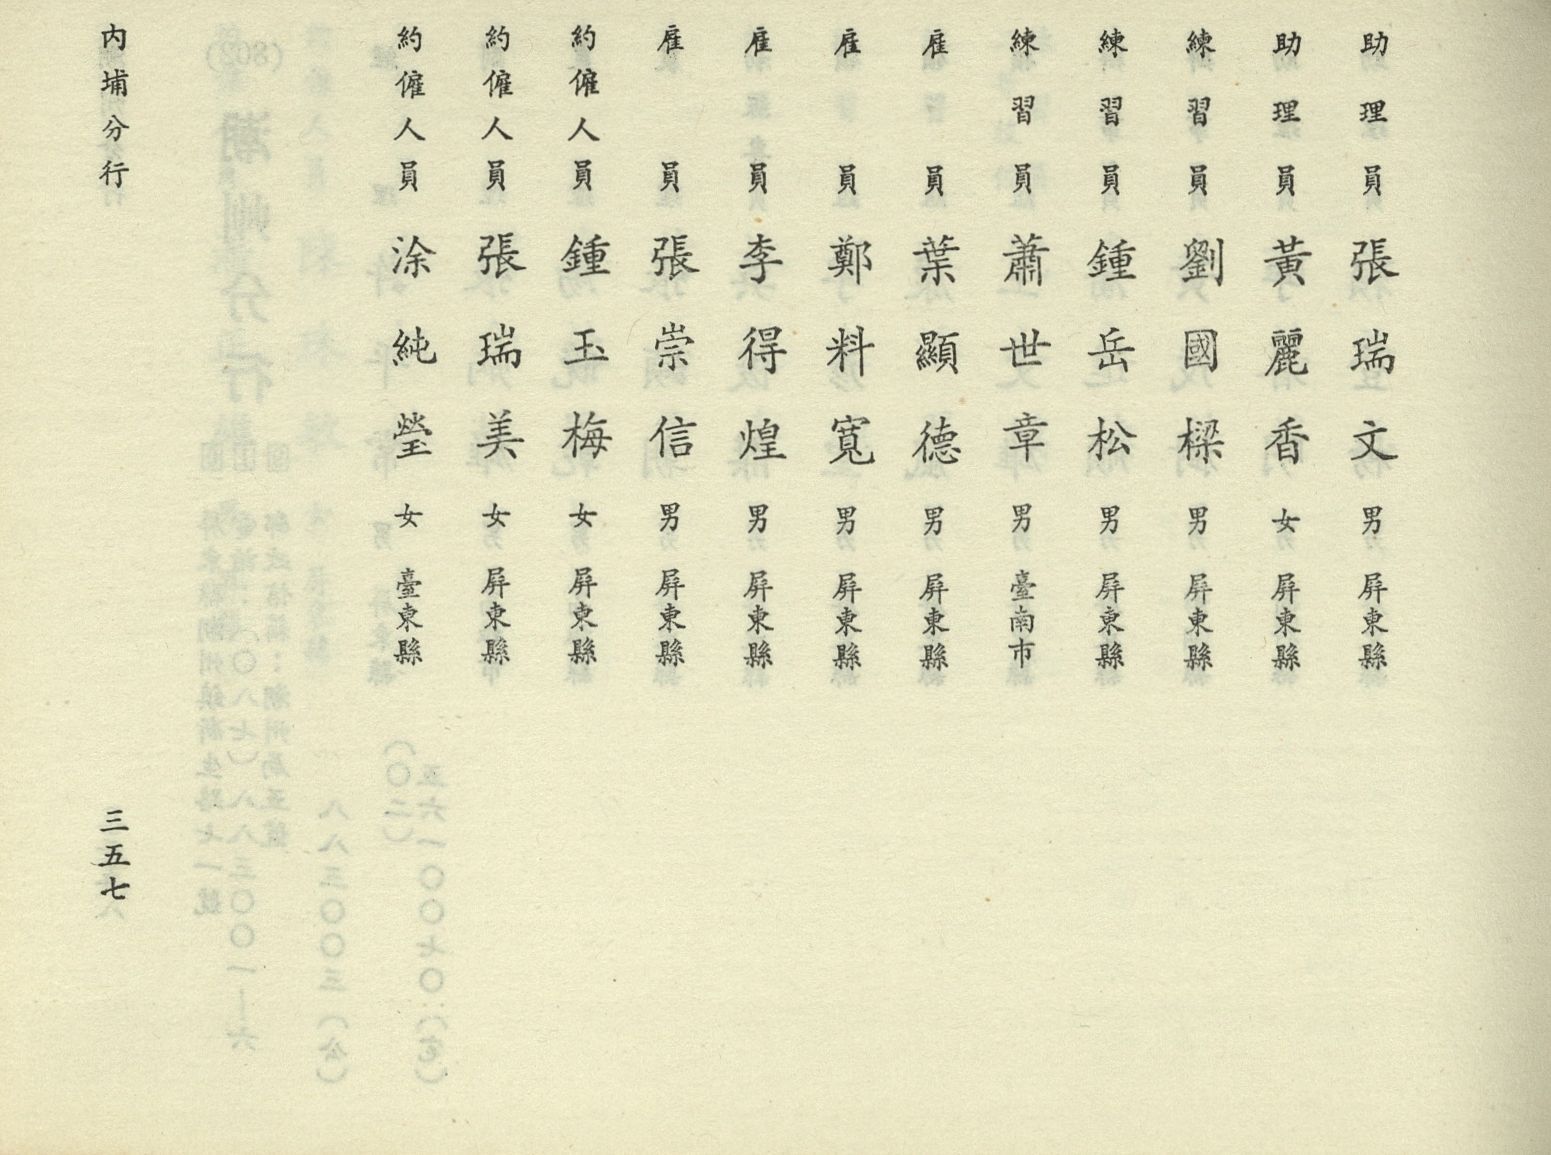 助理員張瑞文男屏東縣
助理員黃麗香女屏東縣
練習員劉國樑男屏東縣
練習員鍾岳松男屏東縣
練習員蕭世章男臺南市
雇員葉顯德男屏東縣
雇員鄭料寬男屏東縣
雇員李得煌男屏東縣
雇員張崇信男屏東縣
約僱人員鍾玉梅女屏東縣
約僱人員張瑞美女屏東縣
約僱人員涂純瑩女臺東縣
內埔分行
三五七